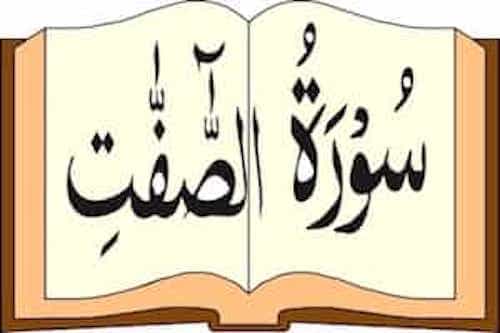 سُوْرَةُ الصّٰٓفّٰتِ